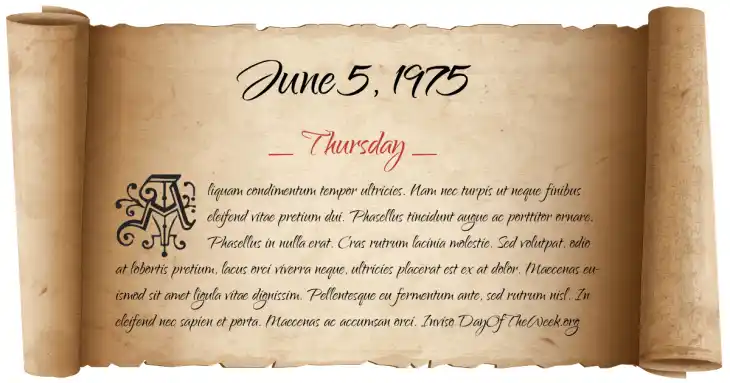 June 5, 1975
_ Thursday _
Aliquam condimentum tempor ultricies. Nam nec turpis ut neque finibus
eleifend vitae pretium dui. Phasellus tincidunt augue ac porttitor ornare.
Phasellus in nulla erat. Cras rutrum lacinia molestie. Sed volutpat, odio
at lobortis pretium, lacus orci viverra neque, ultricies placerat est ex at dolor. Maecenas eu-
ismod sit amet ligula vitae dignissim. Pellentesque eu fermentum ante, sed rutrum nisl. In
eleifend nec sapien et porta. Maecenas ac accumsan orci. Inviso DayOfTheWeek.org